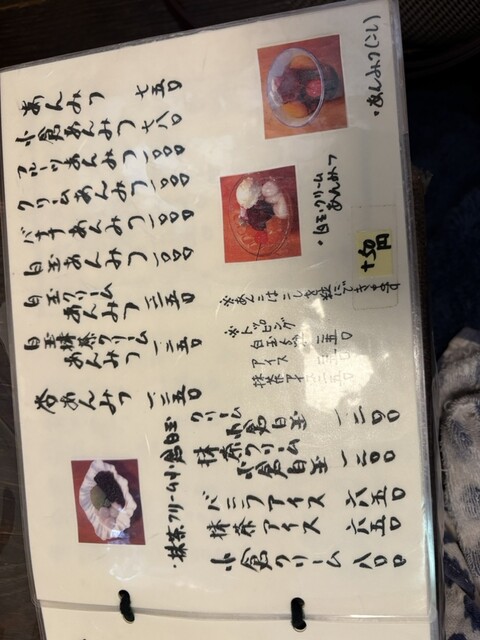 あんみつ 七五〇
小倉あんみつ 七八〇
フルーツあんみつ 一〇〇〇
クリームあんみつ 一〇〇〇
バナナあんみつ 一〇〇〇
白玉あんみつ 一〇〇〇
白玉クリームあんみつ 一二五〇
白玉抹茶クリームあんみつ 一二五〇
杏あんみつ 一二五〇
・あんみつ(こし)
・白玉クリーム
あんみつ
+50円
※あんこはこしと粒にできます
※トッピング
白玉
アイス
抹茶アイス 二五〇
クリーム小倉白玉 一一〇〇
抹茶クリーム小倉白玉 一二〇〇
バニラアイス 六五〇
抹茶アイス 六五〇
小倉クリーム 八〇〇
・抹茶クリーム小倉白玉